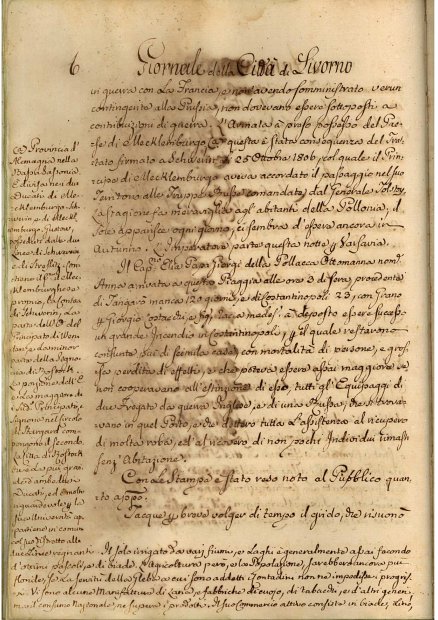 6 Giornale della Città di Livorno
in guerra con La Francia, e non avendo somministrato verun
contingente alla Prussia, non dovevano essere sottoposti a
contribuzioni di guerra. L'Armata à preso possesso del Paese
di Mecklemburgo questa è stata conseguenza del Trat
tato firmato a Schwerin 25 Ottobre 1806, col quale il Prin
cipe di Mecklemburgo aveva accordato il passaggio nel suo
Territorio alle Truppe Russe comandate dal Generale Tolstoy
La stagione fa meraviglia agl'abitanti della Pollonia, il
Sole apparisce ogni giorno, ci sembra d'essere ancora in
Autunno. L'Imperatore parte questa notte p. Varsavia.
Il Cap.no Elia Papa Giorgi della Pollacca Ottomanna nom.
Anna arrivata a questa Piaggia alle ore di sera, procedente
di Tangarò manca 120 giorni, e di Costantinopoli 23, con Grano
à deposto essere successo
un grande Incendio in Costantinopoli, p. il quale restarono
consunte più di seimila case, con mortalità di persone, e gros
sa perdita di effetti, e che poteva essere assai maggiore se
non cooperavano all'estinzione di esso, tutti gl'Equipaggi di
due Fregate da guerra Inglesi, e di una Russa, che si trova
vano in quel Porto, e che diedero tutta L'assistenza al ricupero
di molta robba, ed al ricovero di non pochi Individui rimasti
senz'Abitazione.
Con Le Stampe è stato reso noto al Pubblico quan
to appo.
Tacque p. breve volger di tempo il grido, che risuonò
Provincia d'A
lemagna nella
Bassa Sassonia
E divisa nei due
Ducati di Mec
klemburgo Schwe
rin e di Meck
lemburgo Gustrow,
posseduti dalle due
Linee di Schwerin
e di Strelitz. Con
tiene il Mec
klemburghese
proprio, La Contea
di Schwerin, La
parte dell'O del
Principato di Wen
den,
parte della Signo
ria di Rostock
La porzione dell'E
è La maggiore di
Principato, e
signoria, nel circolo
di Stargard com
ponente il secondo.
La Città di Rostock
che è La più gran
de d'ambedue i
Ducati,
guardevole p. la
sua Università ap
partiene in comu
col suo distretto alle
due Linee regnanti.
Il solo irrigato da vari fiumi, e Laghi è generalmente assai fecondo
d'ottimi pascoli, e di biade. L'agricoltura però, e La Popolazione, sarebbero ancora più
floride, se La servitù della Gleba a cui sono addetti i Contadini non ne impedisse i progres
si. Vi sono alcune Manifatture di Lana, e fabbriche di cuojo, di tabacchi, e d'altri generi
ma il consumo Nazionale ne supera i prodotti. Il suo Commercio attivo consiste in biade, Lino,